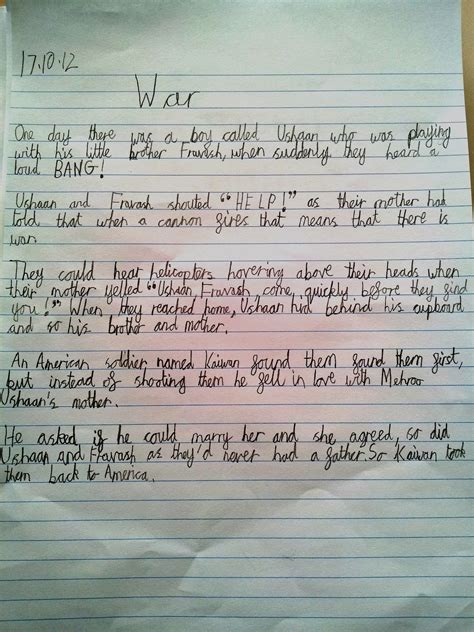 17.10.12
War
One day there was a boy called Ushaan who was playing
with his little brother Fravash, when suddenly they heard a
loud BANG!
Ushaan and Fravash shouted "HELP!" as their mother had
told that when a cannon fires that means that there is
war.
They could hear helicopters hovering above their heads when
their mother yelled "Ushaan, Fravash, come quickly before they find
you!" When they reached home, Ushaan hid behind his cupboard
and so his brother and mother.
An American soldier named Kaiwan found them found them first,
but instead of shooting them he fell in love with Mehroo
Ushaan's mother.
He asked if he could marry her and she agreed, so did
Ushaan and Fravash as they'd never had a father. So Kaiwan took
them back to America.